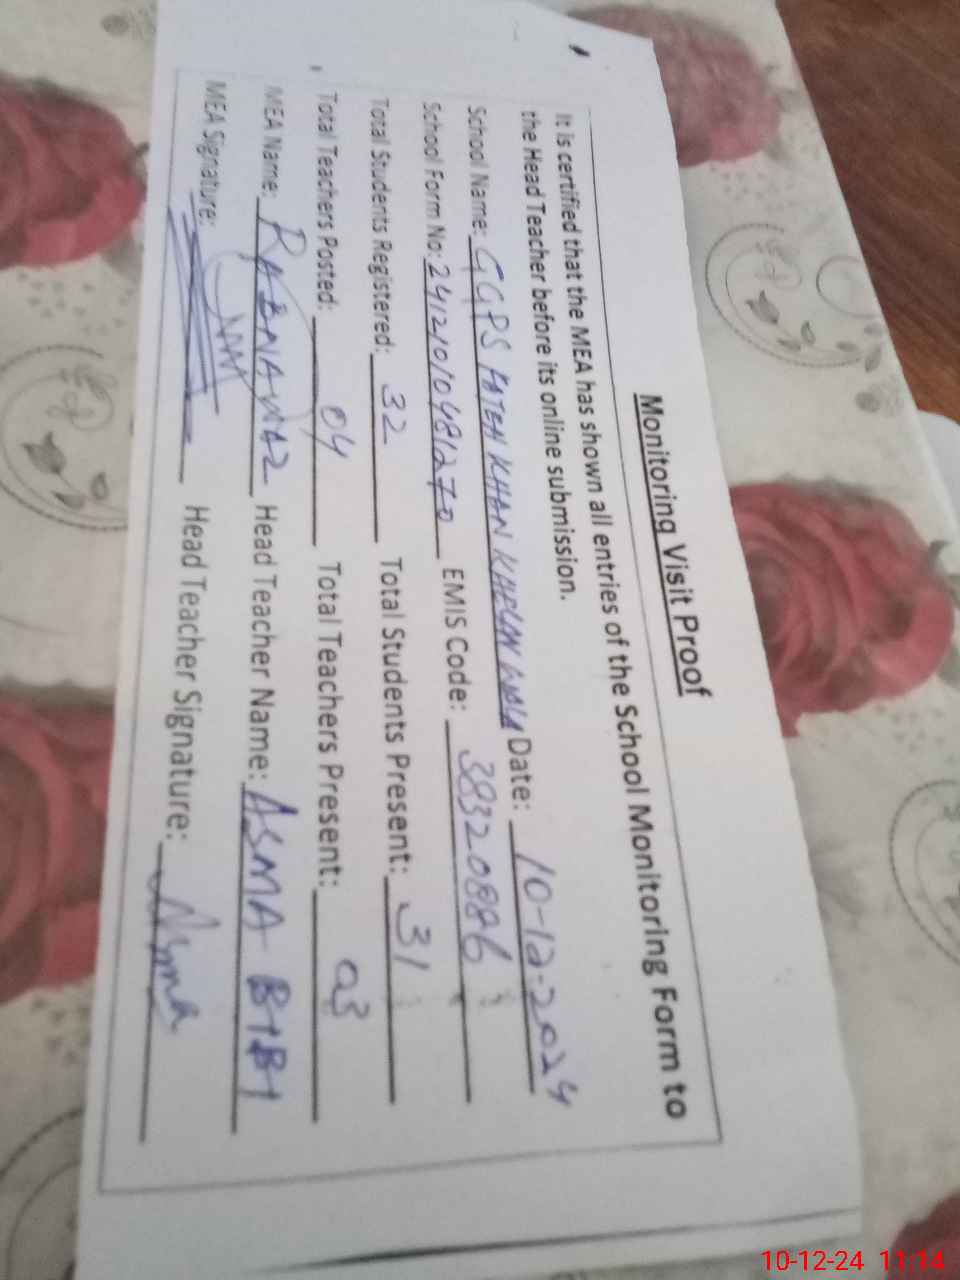 Monitoring Visit Proof
It is certified that the MEA has shown all entries of the School Monitoring Form to
the Head Teacher before its online submission.
School Name: GGPS FATEH KHAN Date: 10-12-2024
School Form No: 24121010481270 EMIS Code: 38320886
Total Students Registered: 32 Total Students Present: 31
Total Teachers Posted: 04 Total Teachers Present: 03
MEA Name: Head Teacher Name: ASMA BIBI
MEA Signature: Head Teacher Signature: Asma
10-12-24 11:14